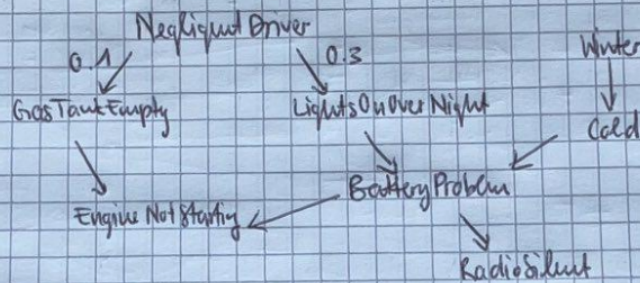 Negligent Driver
0.1
0.3
Winter
GasTankEmpty
LightsOnOverNight
Cold
BatteryProblem
EngineNotStarting
RadioSilent